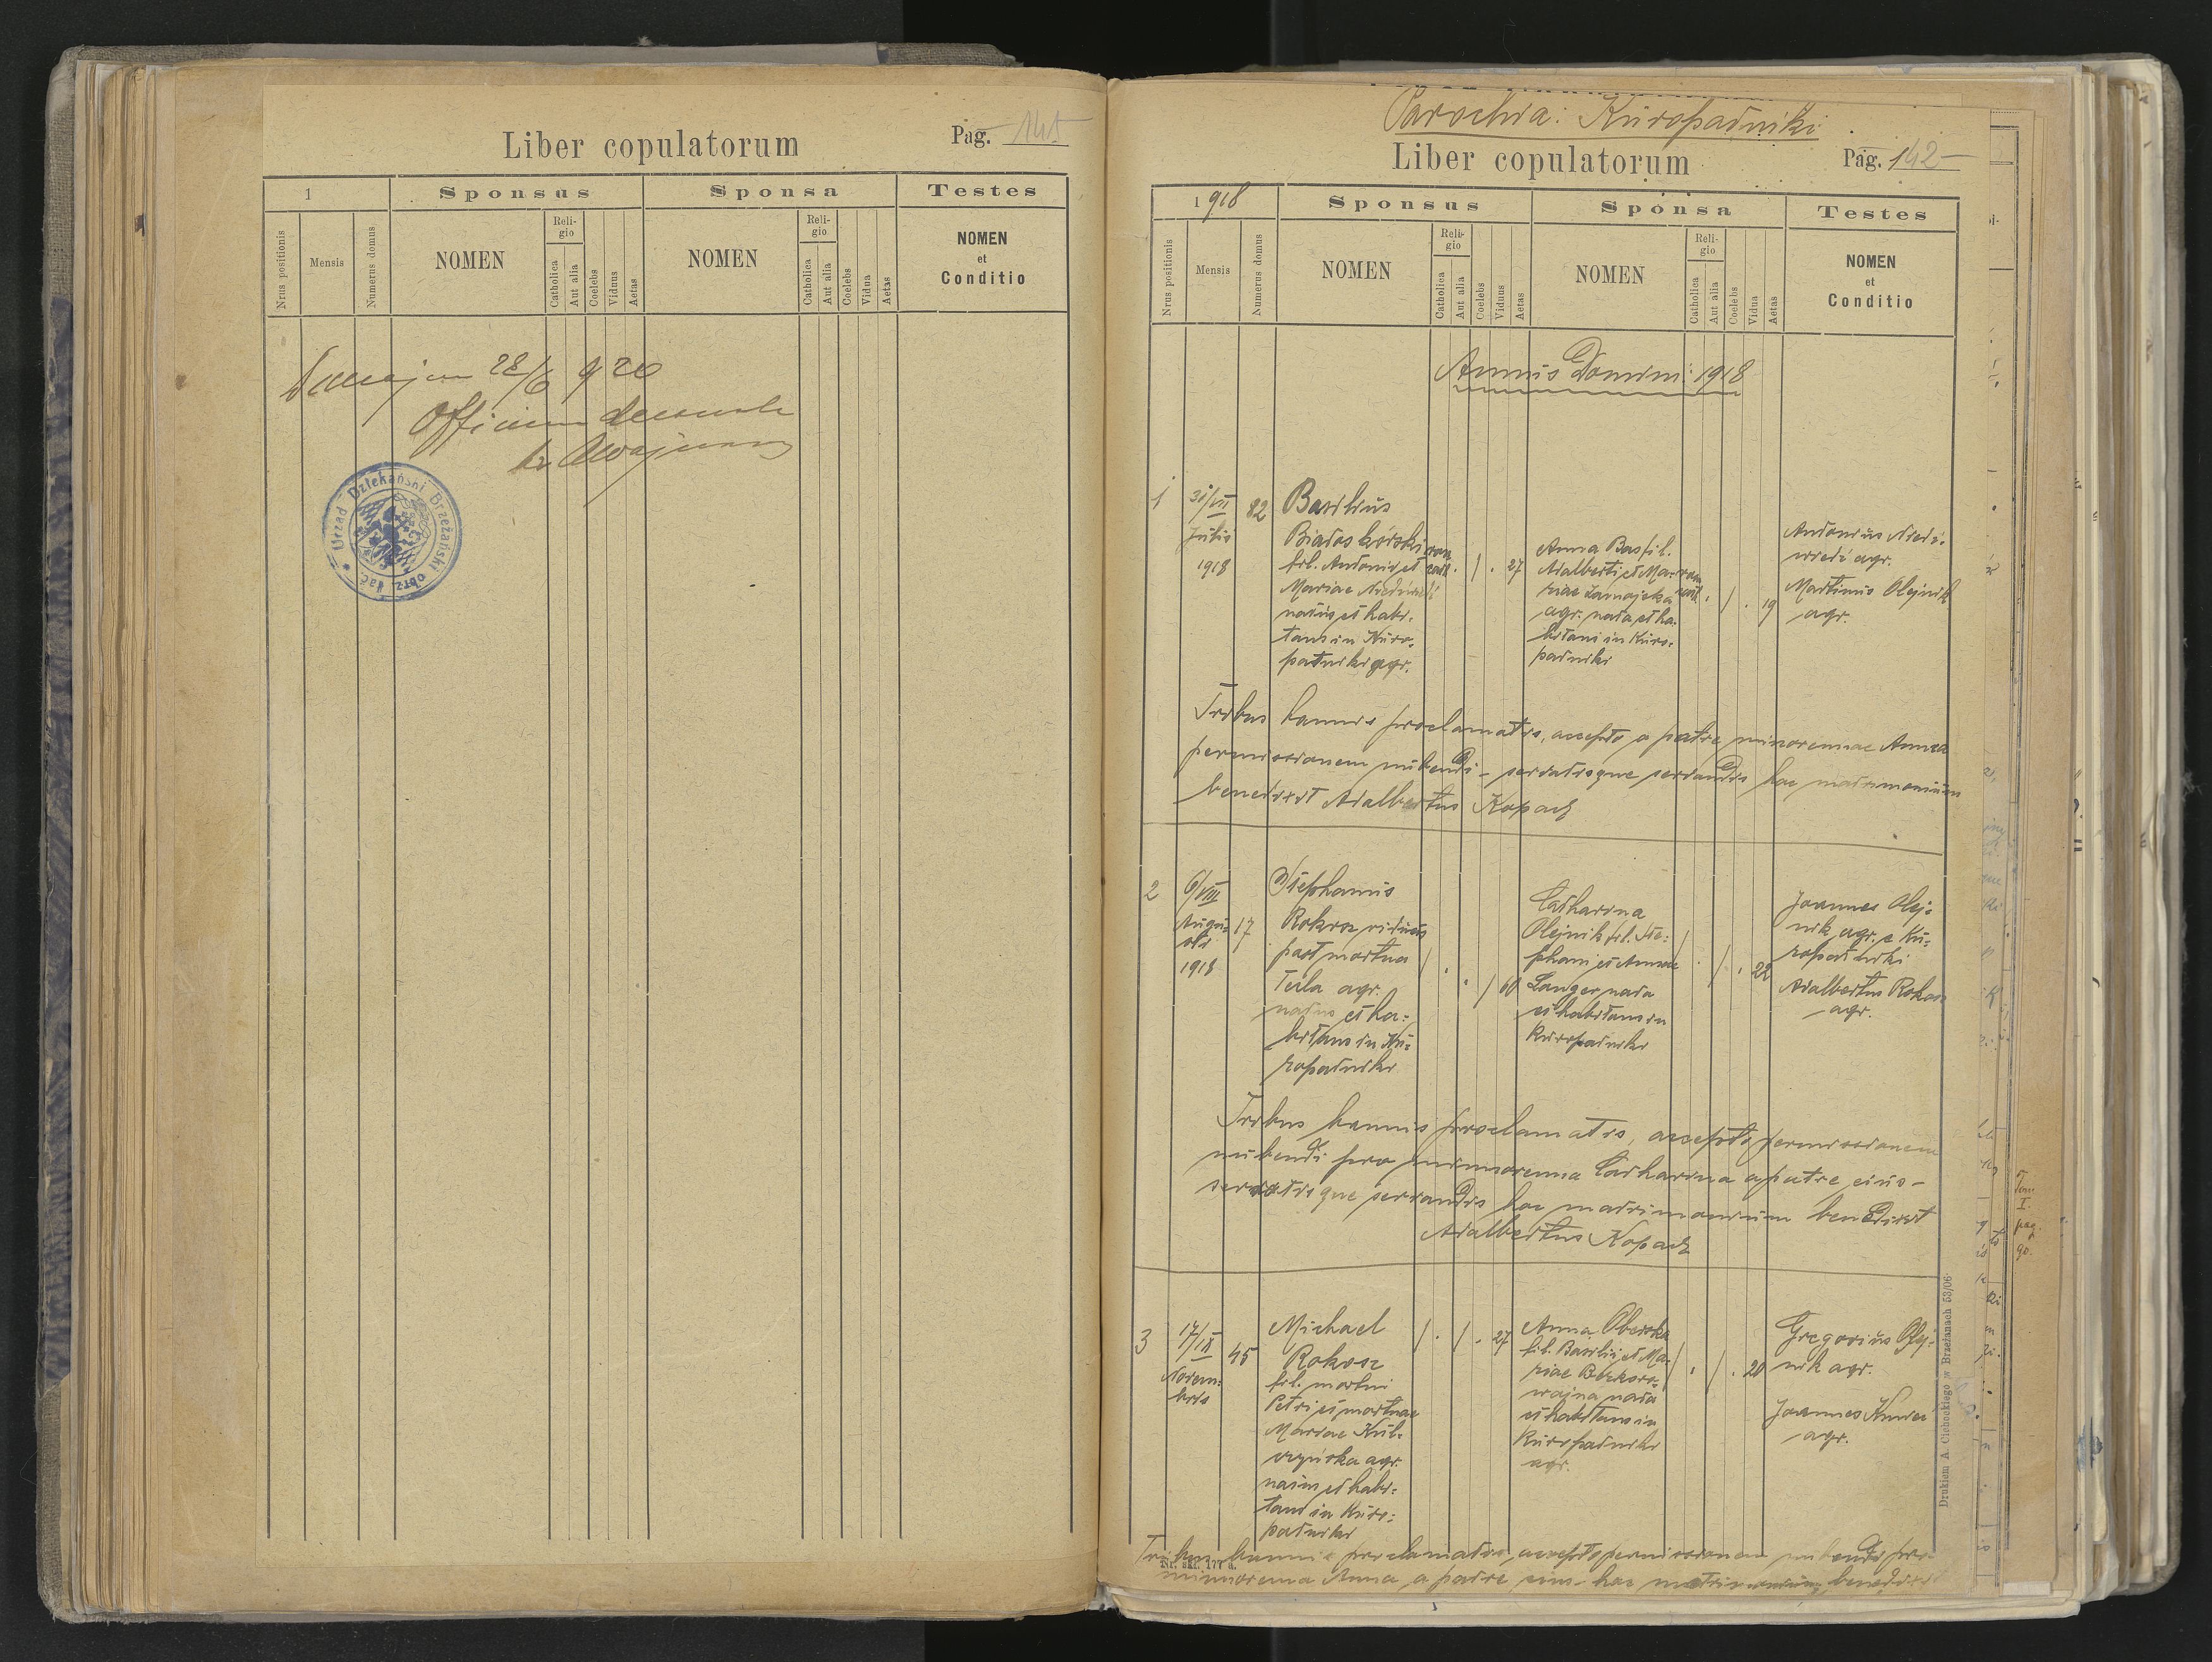 Liber copulatorum
Pag. 141
1
Sponsus
Sponsa
Testes
Nrus positionis
Mensis
Numerus domus
NOMEN
Reli-
gio
Catholica
Aut alia
Coelebs
Viduus
Aetas
NOMEN
Reli-
gio
Catholica
Aut alia
Coelebs
Vidua
Aetas
NOMEN
et
Conditio
28/6 920
Officium
Urząd Dziekański Brzeżański obrz. łac.
Parochia: Kuropatniki
Liber copulatorum
Pag. 142
1918
Sponsus
Sponsa
Testes
Nrus positionis
Mensis
Numerus domus
NOMEN
Reli-
gio
Catholica
Aut alia
Coelebs
Viduus
Aetas
NOMEN
Reli-
gio
Catholica
Aut alia
Coelebs
Vidua
Aetas
NOMEN
et
Conditio
Annus Domini: 1918
1
31/VII
Julii
1918
82
Basilius
Białoskórski
fil. Antonii et
Mariae
natus et habi-
tans in Kuro-
patniki agr.
rom.
cath. . / . 27
Anna Bas fil.
Adalberti et Ma-
riae
agr. nata et ha-
bitans in Kuro-
patniki
rom.
cath. . / . 19
Antonius Niedź-
wiedź agr.
Martinus Olejnik
agr.
Tribus bannis proclamatis, accepto a patre minorennae Annae
permissionem nubendi - servatisque servandis hoc matrimonium
benedixit Adalbertus Kopacz
2
6/VIII
Augu-
sti
1918
17
Stephanus
Rokosz viduus
post mortua
Tekla agr.
natus et ha-
bitans in Ku-
ropatniki
/ . . / 60
Catharina
Olejnik fil. Ste-
phani et Annae
Langer nata
et habitans in
Kuropatniki
/ . / . 22
Joannes Olej-
nik agr. e Ku-
ropatniki
Adalbertus Rokosz
agr.
Tribus bannis proclamatis, accepto permissionem
nubendi pro minorenna Catharina a patre eius -
servatisque servandis hoc matrimonium benedixit
Adalbertus Kopacz
3
17/IX
Novem-
bris
45
Michael
Rokosz
fil. mortui
Petri et mortuae
Mariae Kul-
czyńska agr.
natus et habi-
tans in Kuro-
patniki
/ . / . 27
Anna Oberska
fil. Basilii et Ma-
riae Bezkoro-
wajna nata
et habitans in
Kuropatniki
agr.
/ . / . 20
Gregorius Olej-
nik agr.
Joannes
agr.
Tribus bannis proclamatis, accepto permissionem nubendi pro
minorenna Anna a patre eius - hoc matrimonium benedixit
Nr. skł. 177 a.
Drukiem A. Głębockiego w Brzeżanach 53/06
Tom
I.
pag.
90.